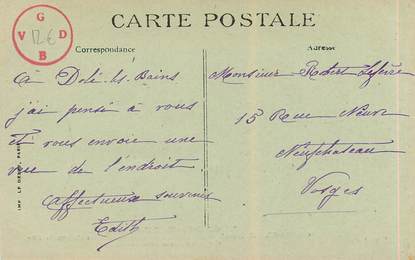 CARTE POSTALE
G
V D
B
12 €
Correspondance
Adresse
à Dolé-les-Bains
j'ai pensé à vous
et vous envoie une
vue de l'endroit
affectueux souvenir
Edith
Monsieur Robert Lefèvre
15 Rue Neuve
Neufchateau
Vosges